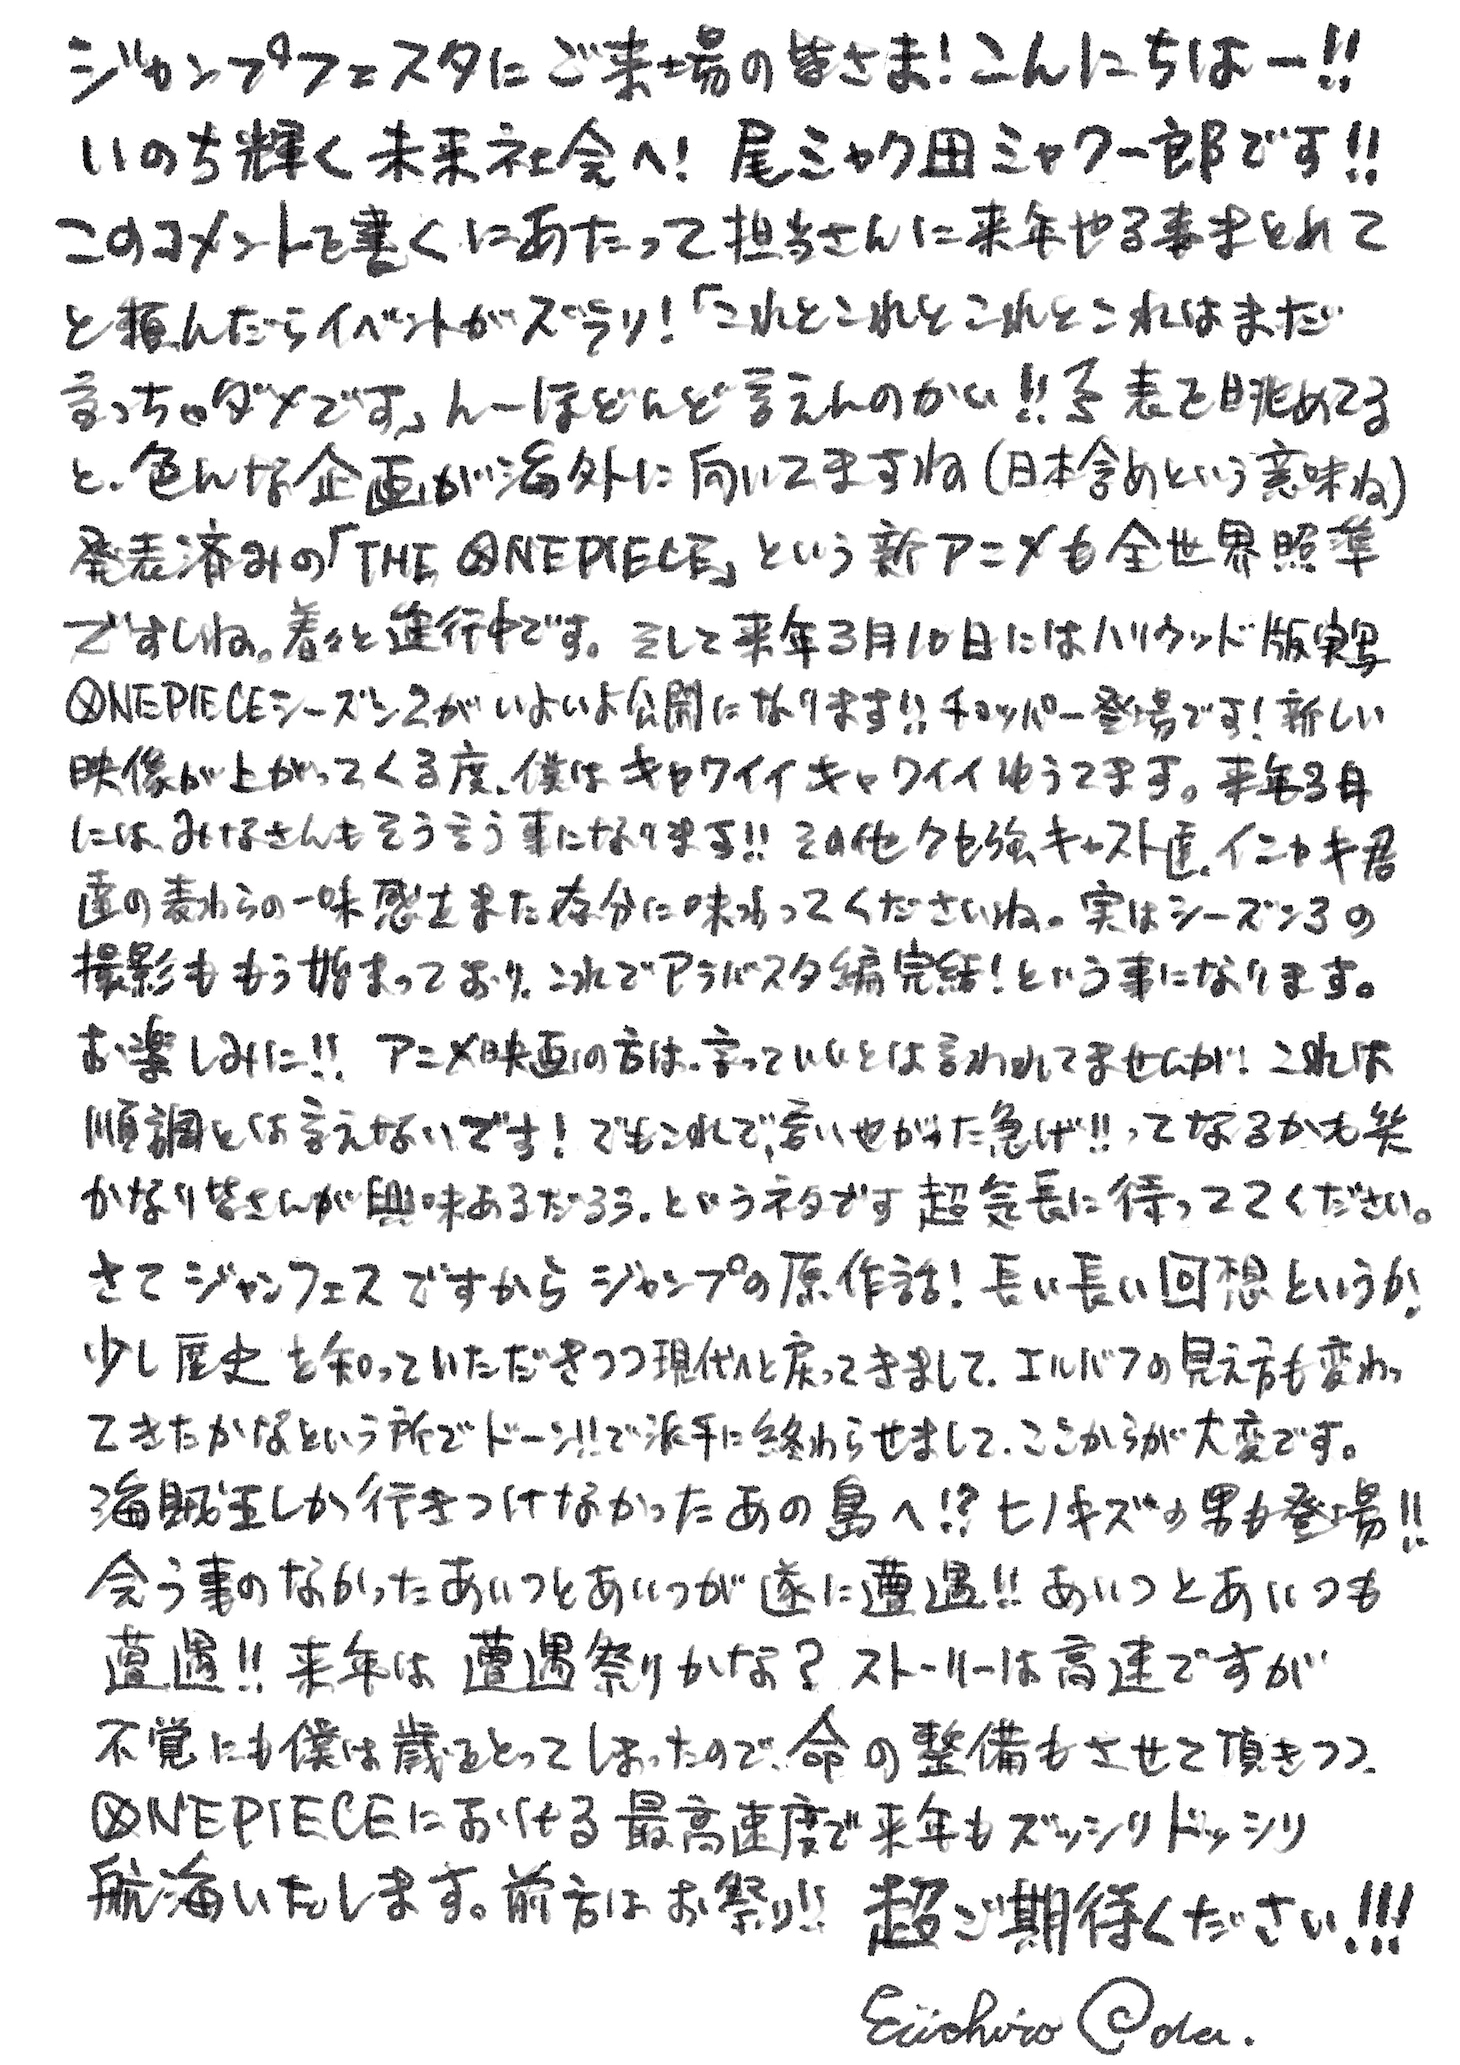 ジャンプフェスタにご来場の皆さま!こんにちはー!!
いのち輝く未来社会へ! 尾ミャク田ミャク一郎です!!
このコメントを書くにあたって担当さんに来年やる事まとめて
と頼んだらイベントがズラリ!「これとこれとこれとこれはまだ
言っちゃダメです」んーほとんど言えんのかい!!予表を眺めてる
と、色んな企画が海外に向いてますね(日本含めという意味ね)
発表済みの「THE ONE PIECE」という新アニメも全世界照準
ですしね。着々と進行中です。そして来年3月10日にはハリウッド版実写
ONE PIECEシーズン2がいよいよ公開になります!!チョッパー登場です!新しい
映像が上がってくる度、僕はキャワイイキャワイイゆうてます。来年3月
には、みなさんもそう言う事になります!!その他クセ強キャスト達、イニャキ君
達の麦わらの一味感をまた存分に味わってくださいね。実はシーズン3の
撮影ももう始まっており、これでアラバスタ編完結!という事になります。
お楽しみに!! アニメ映画の方は、言っていいとは言われてませんが!これは
順調とは言えないです!でもこれで、言いやがった急げ!!ってなるかも笑
かなり皆さんが興味あるだろう、というネタです超気長に待っててください。
さてジャンフェスですからジャンプの原作話!長い長い回想というか!
少し歴史を知っていただきつつ現代へと戻ってきまして、エルバフの見え方も変わっ
てきたかなという所でドーン!!で派手に終わらせまして、ここからが大変です。
海賊王しか行きつけなかったあの島へ!?ヒノキズの男も登場!!
会う事のなかったあいつとあいつが遂に遭遇!!あいつとあいつも
遭遇!!来年は遭遇祭りかな?ストーリーは高速ですが
不覚にも僕は歳をとってしまったので、命の整備もさせて頂きつつ、
ONE PIECEにおける最高速度で来年もズッシリドッシリ
航海いたします。前方はお祭り!! 超ご期待ください!!!
Eiichiro Oda.